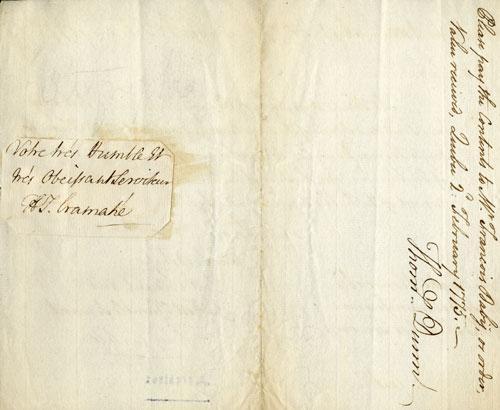 Votre très Humble Et
très Obeissant Serviteur
H. T. Cramahé
Please pay the Contents to Mr. Francois Baby, or order,
Value received, Quebec 2. February 1775.
Thom.. Dunn.